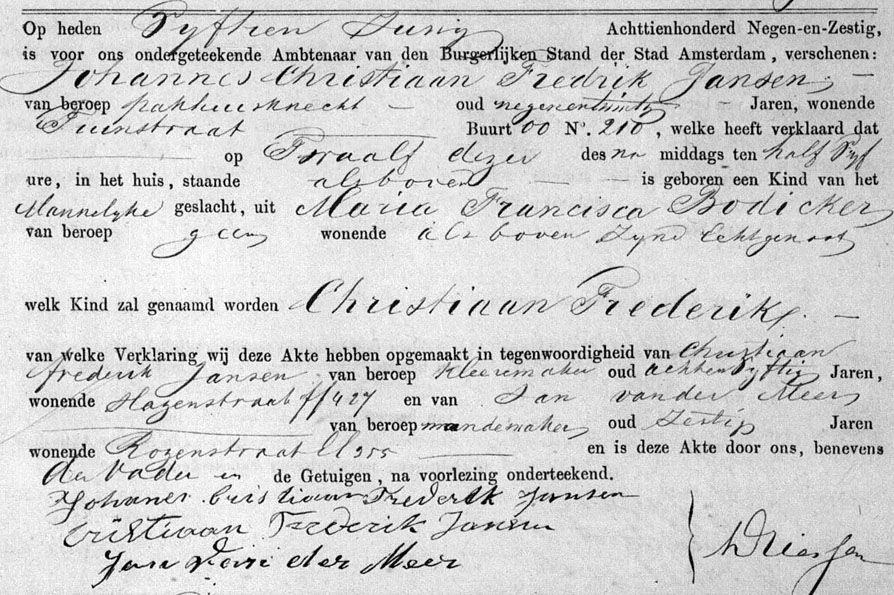 Op heden Vyftien Juny Achttienhonderd Negen-en-Zestig,
is voor ons ondergeteekende Ambtenaar van den Burgerlijken Stand der Stad Amsterdam, verschenen:
Johannes Christiaan Fredrik Jansen
van beroep pakhuisknecht — oud negenentwintig — Jaren, wonende
Tuinstraat Buurt OO No. 210, welke heeft verklaard dat
— op Twaalf dezer des na middags ten half Vyf
ure, in het huis, staande als boven — — is geboren een Kind van het
Mannelyke geslacht, uit Maria Francisca Bodicker
van beroep geen wonende als boven zyne Echtgenoot
welk Kind zal genaamd worden Christiaan Frederik. —
van welke Verklaring wij deze Akte hebben opgemaakt in tegenwoordigheid van Christiaan
frederik Jansen van beroep kleermaker oud achtenvyftig Jaren,
wonende Hazenstraat ff 427 en van Jan van der Meer
van beroep mandemaker oud Zestig Jaren
wonende Rozenstraat ll 255 — en is deze Akte door ons, benevens
de Vader en de Getuigen, na voorlezing onderteekend.
Johannes Cristiaan Frederik Jansen
Cristiaan Frederik Jansen
Jan Van der Meer